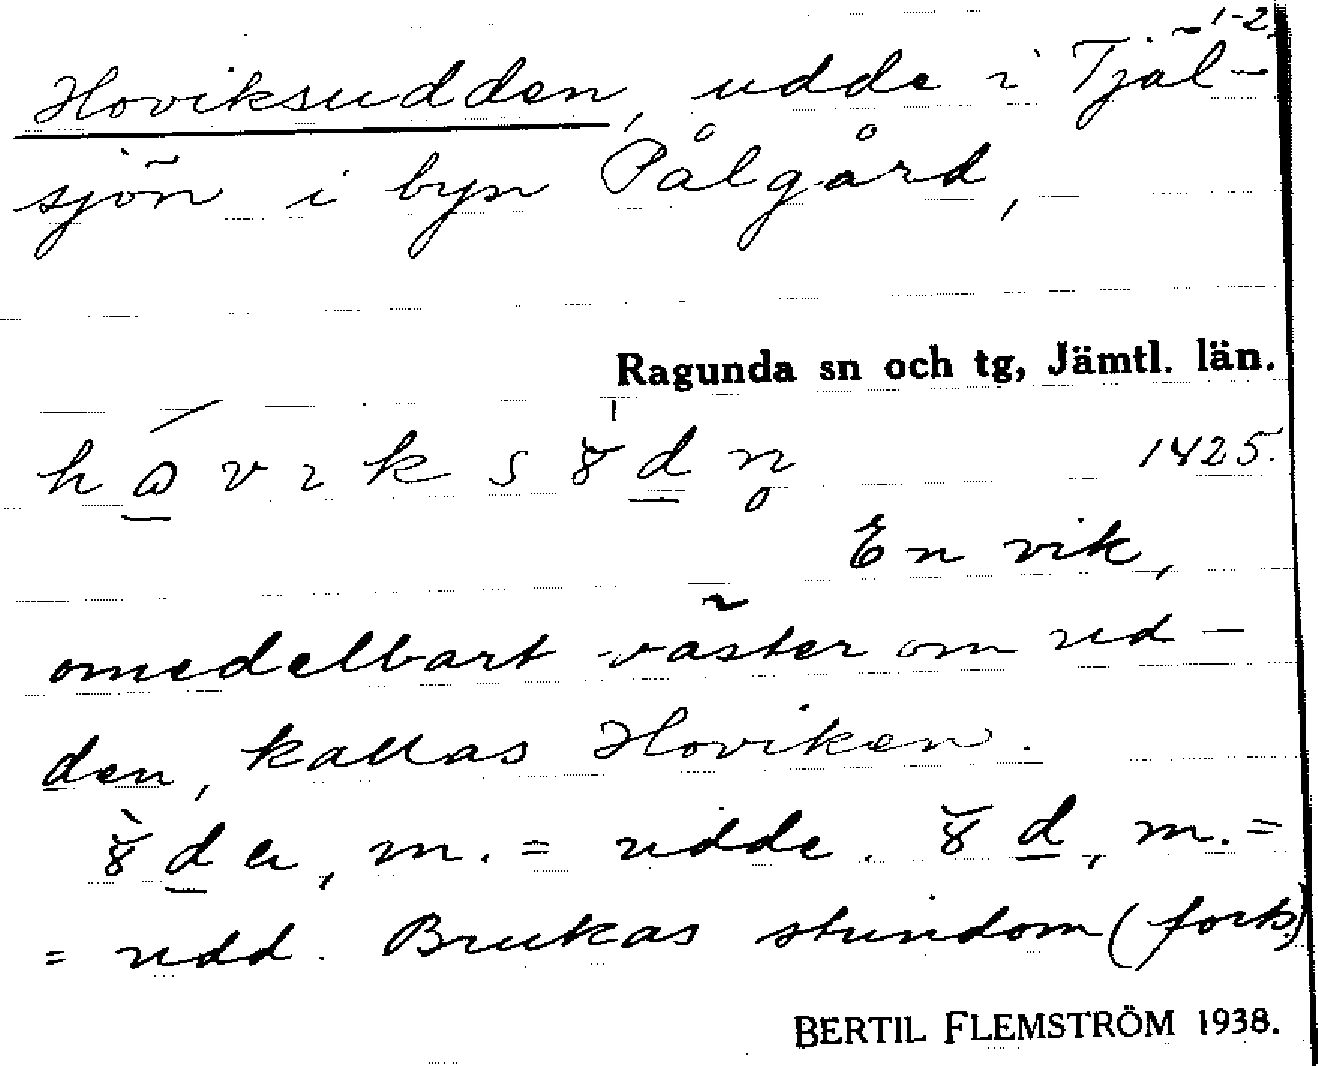 1-2.
Hoviksudden, udde i Tjäl-
sjön i byn Pålgård,
Ragunda sn och tg, Jämtl. län.
1425.
En vik,
omedelbart väster om ud-
den, kallas Hoviken.
m. = udde. m. =
= udd. Brukas stundom (forts.)
BERTIL FLEMSTRÖM 1938.